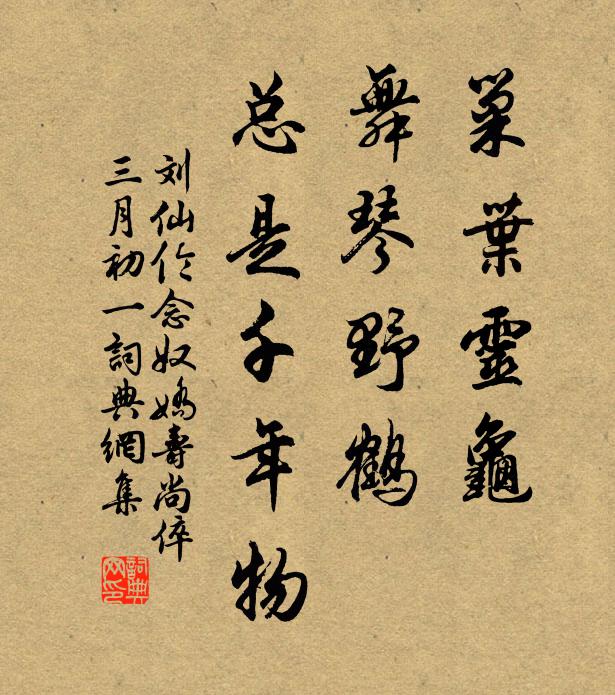 巢葉靈龜
舞琴野鶴
总是千年物
刘仙伦念奴嬌壽尚倅
三月初一詞典網集
詞典网印